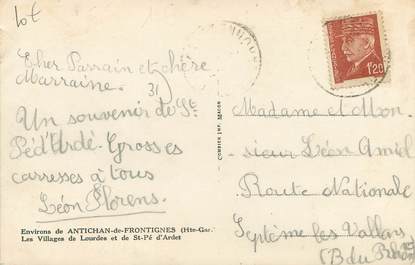 Lot
Cher Parrain et chère
Marraine.
31
Un souvenir de St
Péd'Ardé. Grosses
caresses à tous
Léon Florens.
Environs de ANTICHAN-de-FRONTIGNES (Hte-Gar.
Les Villages de Lourdes et de St-Pé d'Ardet
COMBIER IMP. MACON
1f20
Madame et Mon-
sieur Léon Amiel
Route Nationale
Septème les Vallons
(B du Rhône